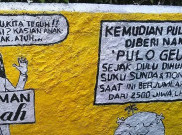 KITA TEGUH!!
? KASIAN ANAK
AK. ATUH...
MAN
ah
KEMUDIAN PUL
DIBERI NAM
'PULO GEU
SEJAK DULU DIHU
SUKU SUNDA & TION
SAAT INI BERJUMLA
DARI 2500 JIWA